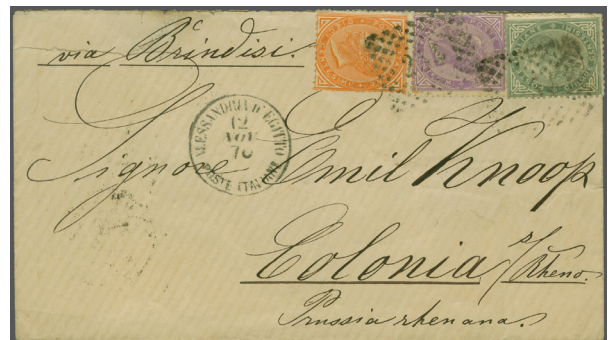 via Brindisi.
ALESSANDRIA D'EGITTO
12
NOV
70
POSTE ITALIANE
Signor Emil Knoop
Colonia s/Rheno.
Prussia rhenana.